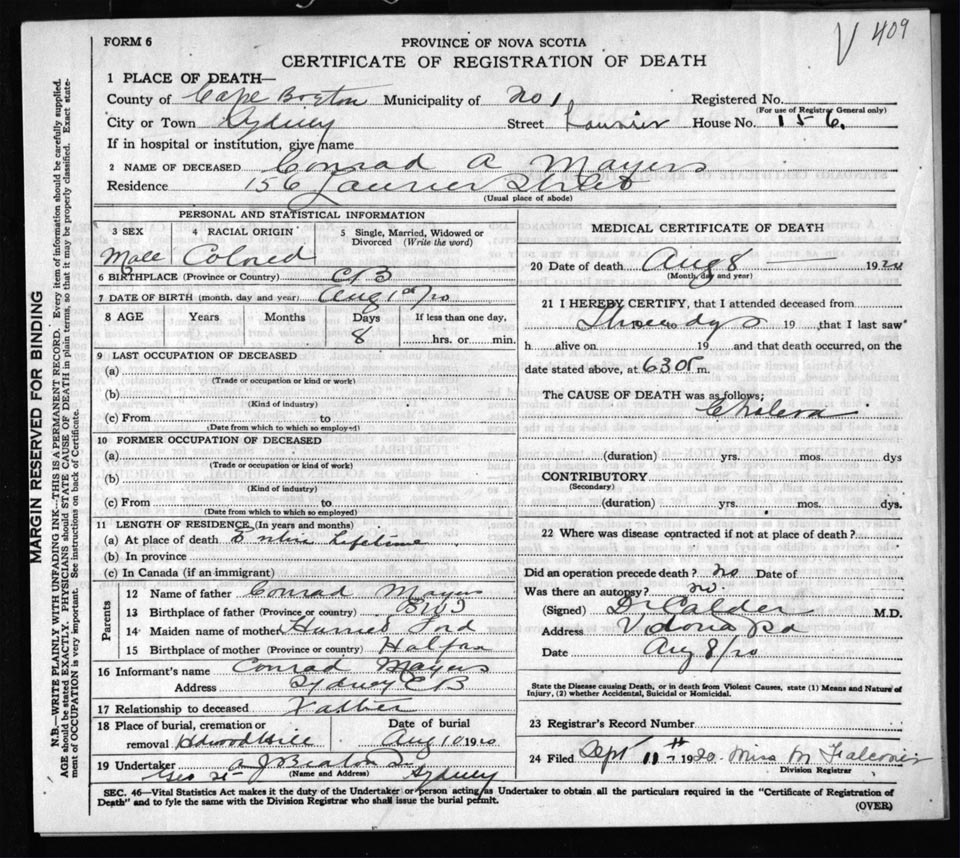 V 409
FORM 6
PROVINCE OF NOVA SCOTIA
CERTIFICATE OF REGISTRATION OF DEATH
1 PLACE OF DEATH—
County of Cape Breton Municipality of No 1 Registered No.
(For use of Registrar General only)
City or Town Sydney Street Laurier House No. 156.
If in hospital or institution, give name
2 NAME OF DECEASED Conrad A Mayers
Residence 156 Laurier Street
(Usual place of abode)
PERSONAL AND STATISTICAL INFORMATION
3 SEX 4 RACIAL ORIGIN 5 Single, Married, Widowed or Divorced (Write the word)
Male Colored
6 BIRTHPLACE (Province or Country) CB
7 DATE OF BIRTH (month, day and year) Aug 1st/20
8 AGE Years Months Days If less than one day,
8 hrs. or min.
9 LAST OCCUPATION OF DECEASED
(a)
(Trade or occupation or kind or work)
(b)
(Kind of industry)
(c) From to
(Date from which to which so employed)
10 FORMER OCCUPATION OF DECEASED
(a)
(Trade or occupation or kind of work)
(b)
(Kind of industry)
(c) From to
(Date from which to which so employed)
11 LENGTH OF RESIDENCE (In years and months)
(a) At place of death Entire Lifetime
(b) In province
(c) In Canada (if an immigrant)
Parents
12 Name of father Conrad Mayers
13 Birthplace of father (Province or country) BWI
14 Maiden name of mother Ford
15 Birthplace of mother (Province or country) Halifax
16 Informant's name Conrad Mayers
Address Sydney CB
17 Relationship to deceased Father
18 Place of burial, cremation or Date of burial
removal Hardwood Hill Aug 10 1920
19 Undertaker A J Beaton Sydney
(Name and Address)
MEDICAL CERTIFICATE OF DEATH
20 Date of death Aug 8 1920
(Month, day and year)
21 I HEREBY CERTIFY, that I attended deceased from
19 , that I last saw
h alive on 19 and that death occurred, on the
date stated above, at 630 m.
The CAUSE OF DEATH was as follows;
Cholera
(duration) yrs. mos. dys
CONTRIBUTORY
(Secondary)
(duration) yrs. mos. dys.
22 Where was disease contracted if not at place of death?
Did an operation precede death? no Date of
Was there an autopsy? no.
(Signed) Dr Calder M.D.
Address Victoria Rd
Date Aug 8/20
State the Disease causing Death, or in death from Violent Causes, state (1) Means and Nature of
Injury, (2) whether Accidental, Suicidal or Homicidal.
23 Registrar's Record Number
24 Filed Sept 11th 1920. Miss M Falconer
Division Registrar
SEC. 46—Vital Statistics Act makes it the duty of the Undertaker or person acting as Undertaker to obtain all the particulars required in the "Certificate of Registration of
Death" and to fyle the same with the Division Registrar who shall issue the burial permit.
(OVER)
MARGIN RESERVED FOR BINDING
N.B.—WRITE PLAINLY WITH UNFADING INK—THIS IS A PERMANENT RECORD. Every item of information should be carefully supplied.
AGE should be stated EXACTLY. PHYSICIANS should STATE CAUSE OF DEATH in plain terms, so that it may be properly classified. Exact state-
ment of OCCUPATION is very important. See instructions on back of Certificate.